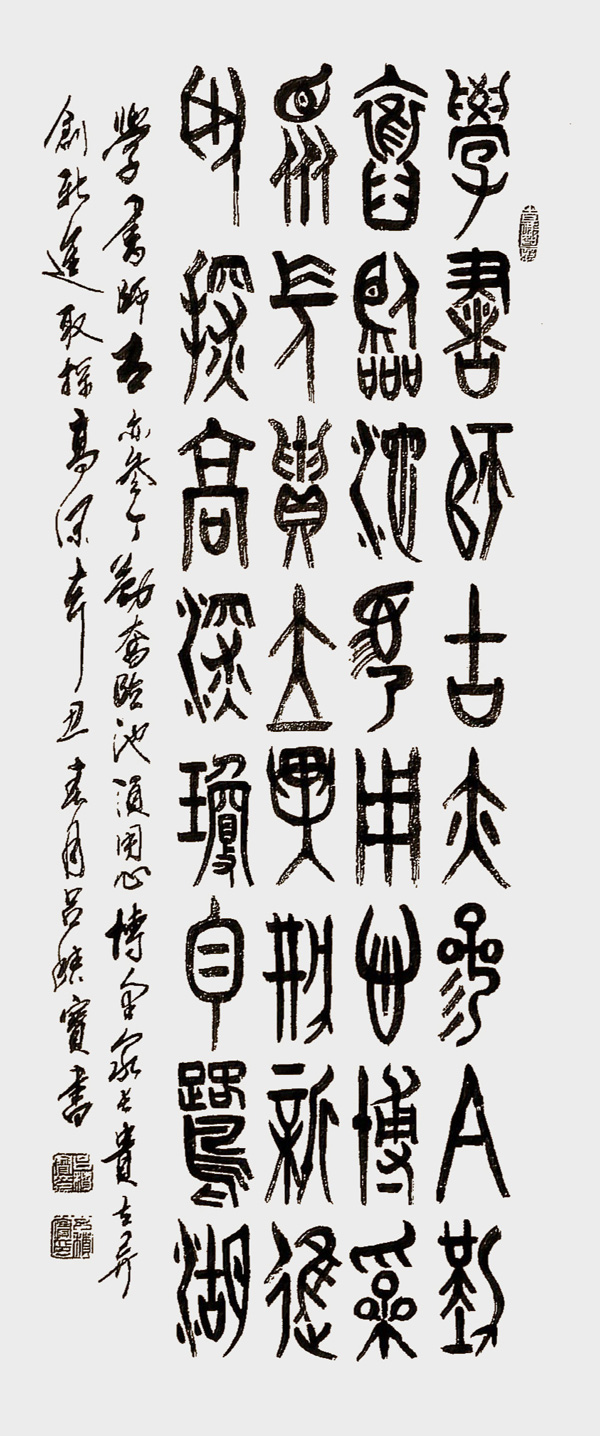 學書師古亦參今勤
奮臨池須用心博采
眾長貴立異創新進
取探高深瓊自鷺湖
學書師古亦參今勤奮臨池須用心博采眾長貴立異
創新進取探高深辛丑春月呂寶書